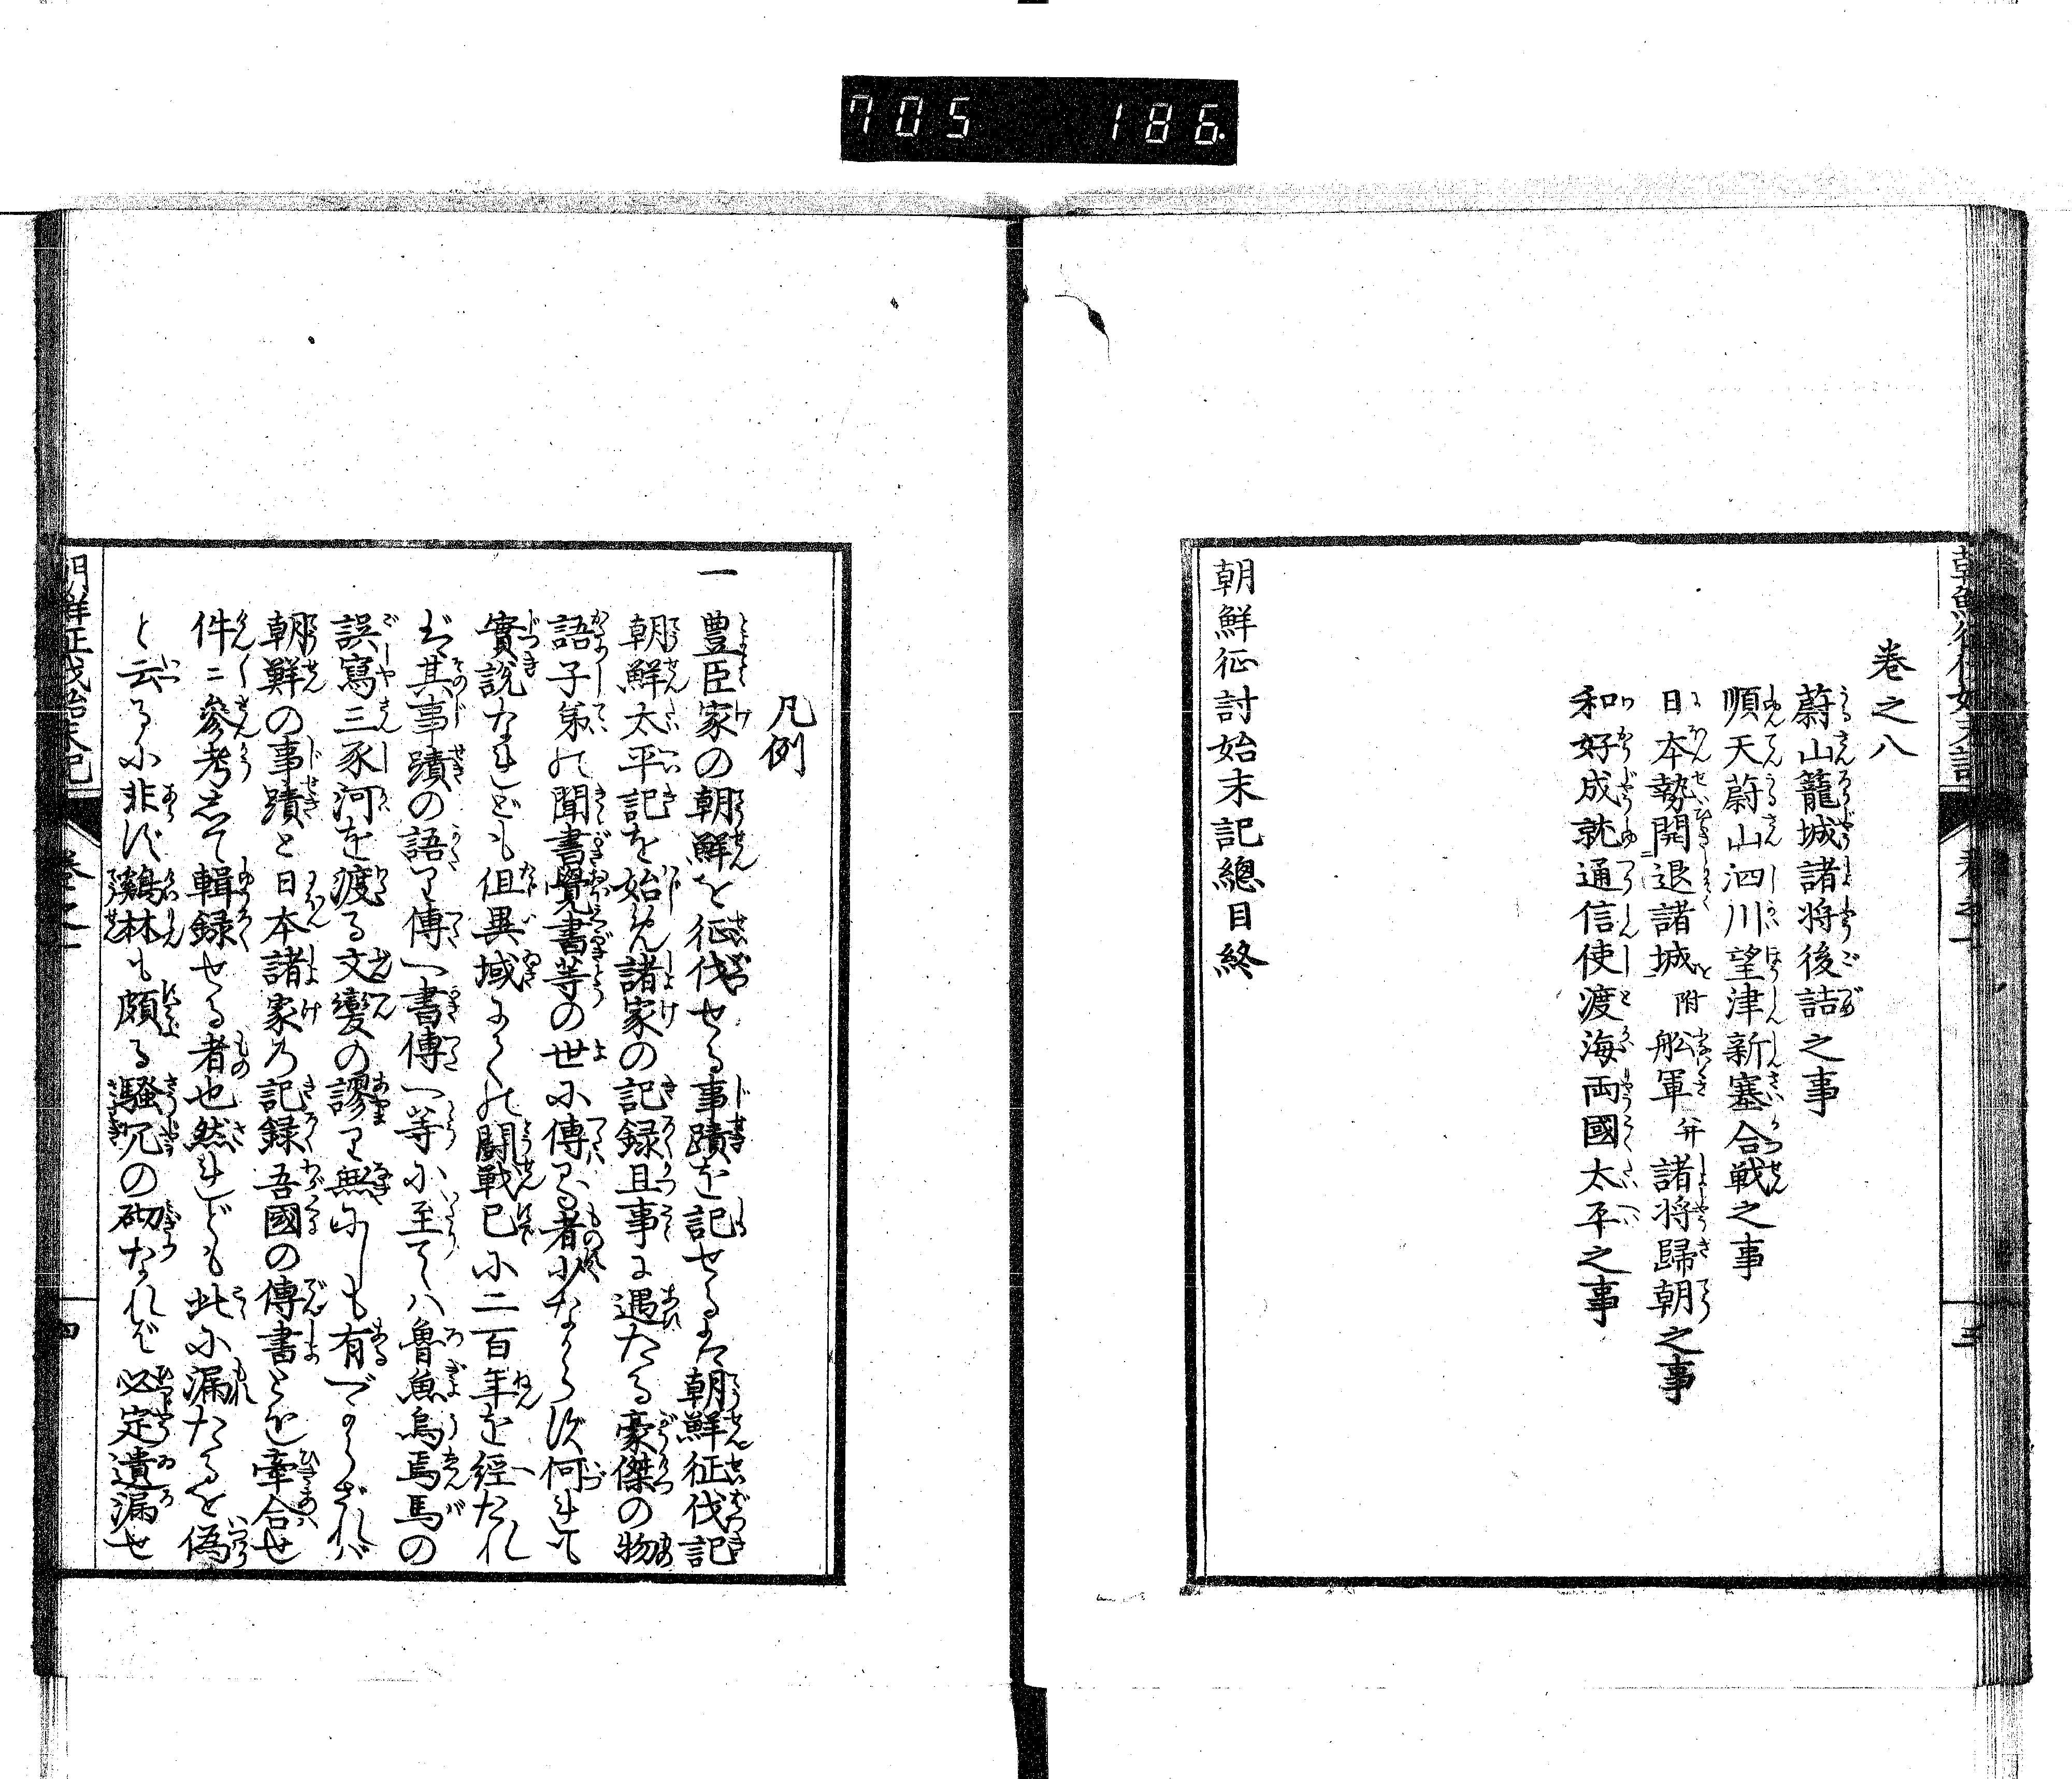 705 186.
卷之八
蔚山籠城諸将後詰之事
順天蔚山泗川望津新塞合戦之事
日本勢開退諸城附船軍并諸将歸朝之事
和好成就通信使渡海両國太平之事
朝鮮征討始末記總目終
三
凡例
一豊臣家の朝鮮を征伐せる事蹟を記せるは朝鮮征伐記
朝鮮太平記を始め諸家の記録且事に遇たる豪傑の物
語子弟の聞書覺書等の世に傳る者少なからず何れも
實説なれども但異域の闘戰已に二百年を經たれ
ば其事蹟の語り傳へ書傳へ等に至ては魯魚烏焉馬の
誤寫三豕河を渡る文變の謬り無にしも有べからざれバ
朝鮮の事蹟と日本諸家の記録吾國の傳書とを牽合せ
件々參考して輯録せる者也然れども此に漏たるを偽
と云るに非ず鷄林も頗る騒冗の砌なれば必定遺漏せ
朝鮮征伐始末記
卷之一
四